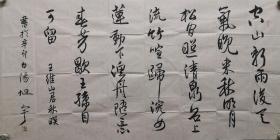 空山新雨後天
氣晚來秋明月
松間照清泉石上
流竹喧歸浣女
蓮動下漁舟隨意
春芳歇王孫自
可留 王維山居秋暝
於辛卯